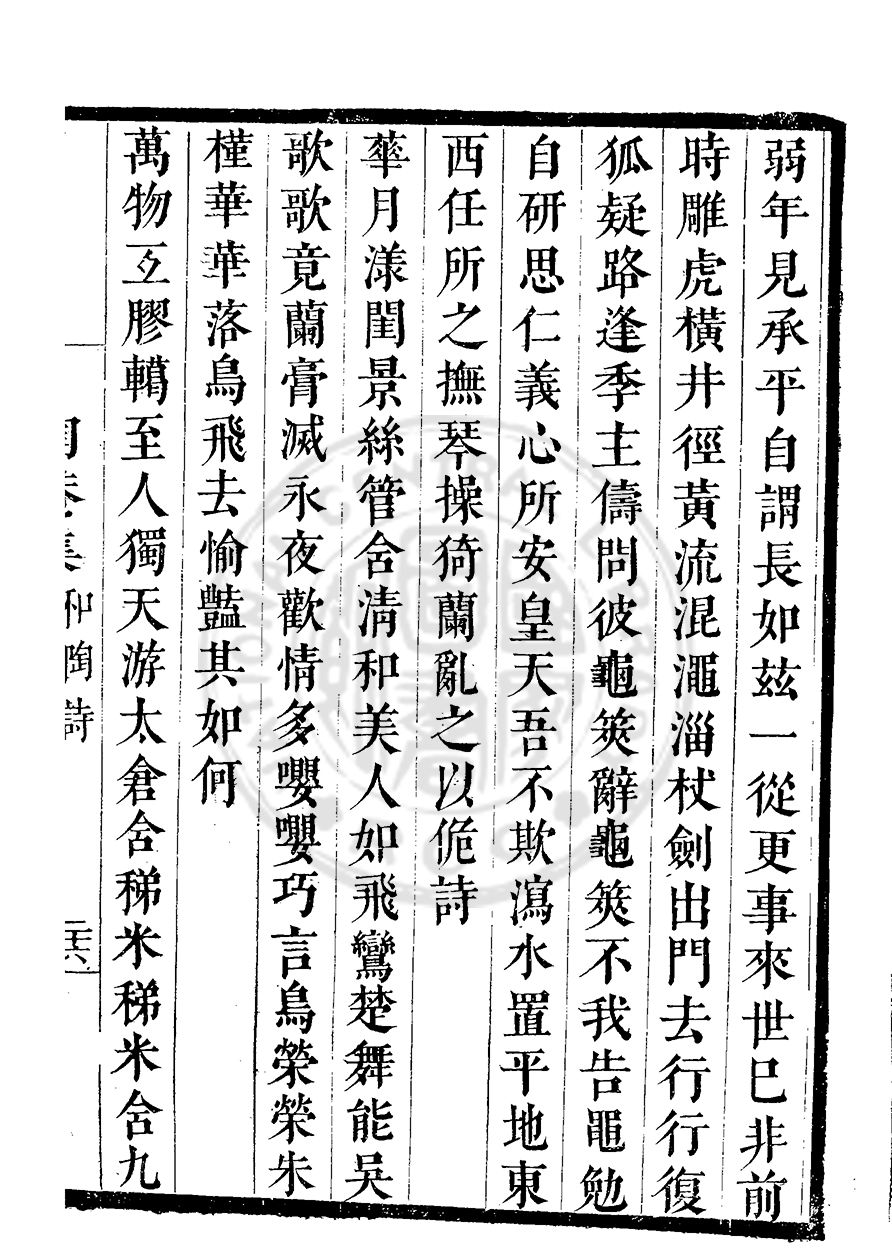 弱年見承平自謂長如玆一從更事來世已非前
時雕虎橫井徑黃流混澠淄杖劍出門去行行復
狐疑路逢季主儔問彼龜筴辭龜筴不我告黽勉
自研思仁義心所安皇天吾不欺瀉水置平地東
西任所之撫琴操猗蘭亂之以佹詩
華月漾閨景絲管含清和美人如飛鸞楚舞能吳
歌歌竟蘭膏滅永夜歡情多嚶嚶巧言鳥榮榮朱
槿華華落鳥飛去愉豔其如何
萬物互膠轕至人獨天游太倉含稊米稊米含九
陶菴集和陶詩 二十六